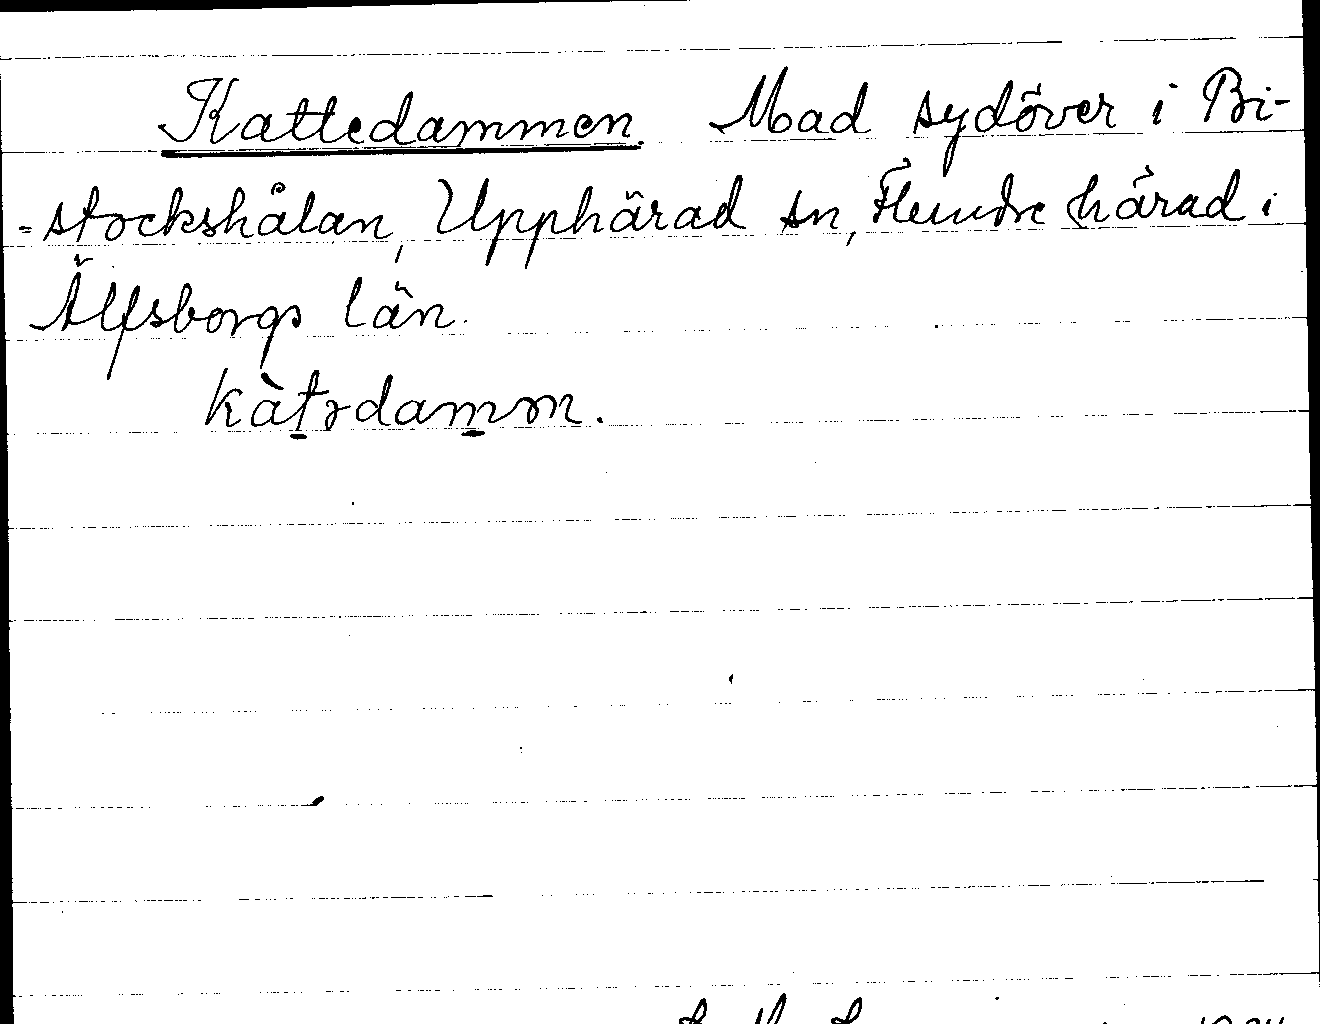 Kattedammen. Mad sydöver i Bi-
-stockshålan, Upphärad sn, Flundre härad i
Älfsborgs län.
kàtədamən.